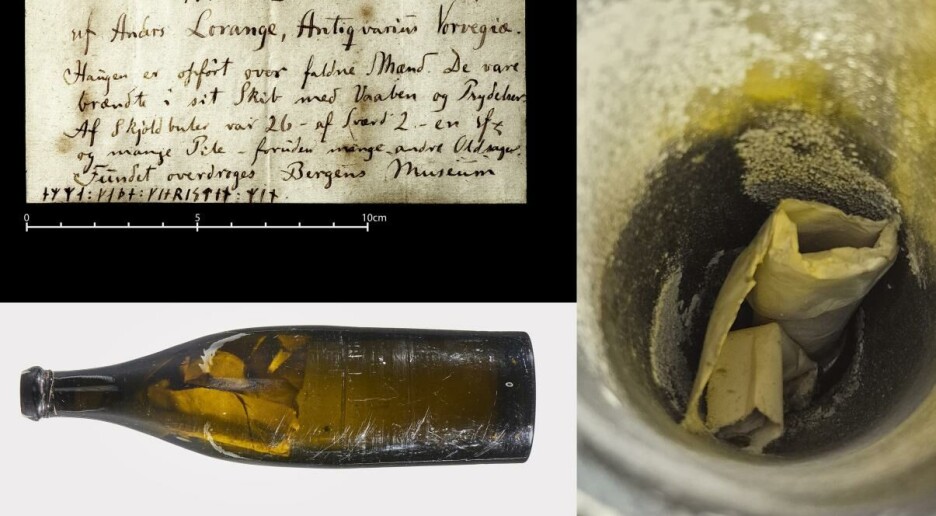 af Anders Lorange, Antiqvarius Norvegiæ.
Haugen er opført over faldne Mænd. De vare
brændte i sit Skib med Vaaben og Prydelser
Af Skjoldbuler var 26 - af Sværd 2 - en
og mange Pile - foruden mange andre Oldsager.
Fundet overdroges Bergens Museum
0 5 10cm